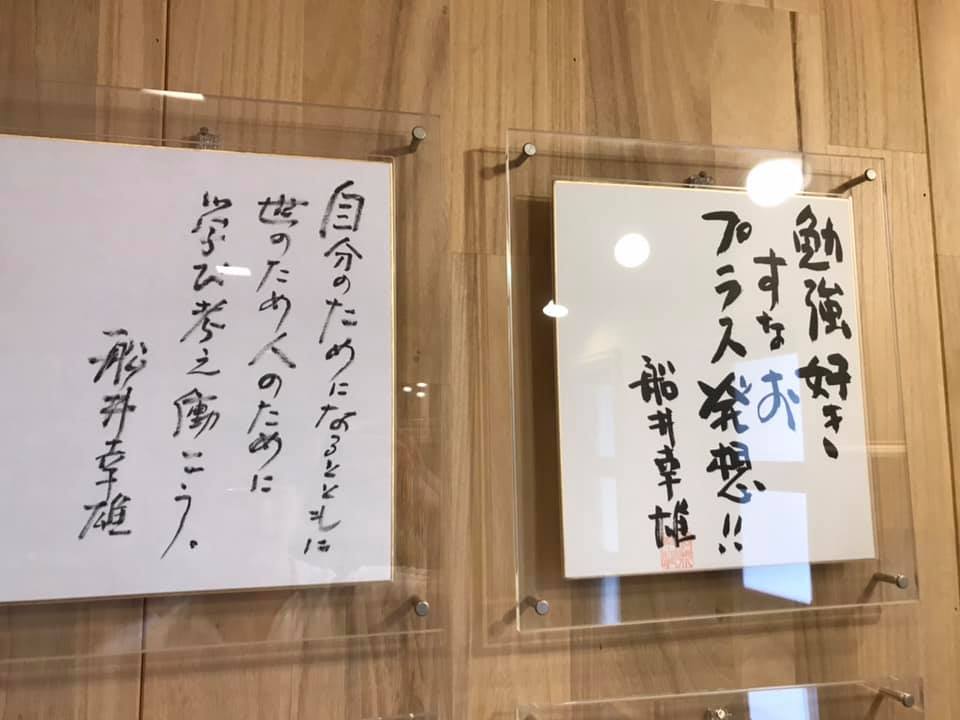 勉強好き
すなお
プラス発想!!
船井幸雄
自分のためになるとともに
世のため人のために
学び考え働こう。
船井幸雄